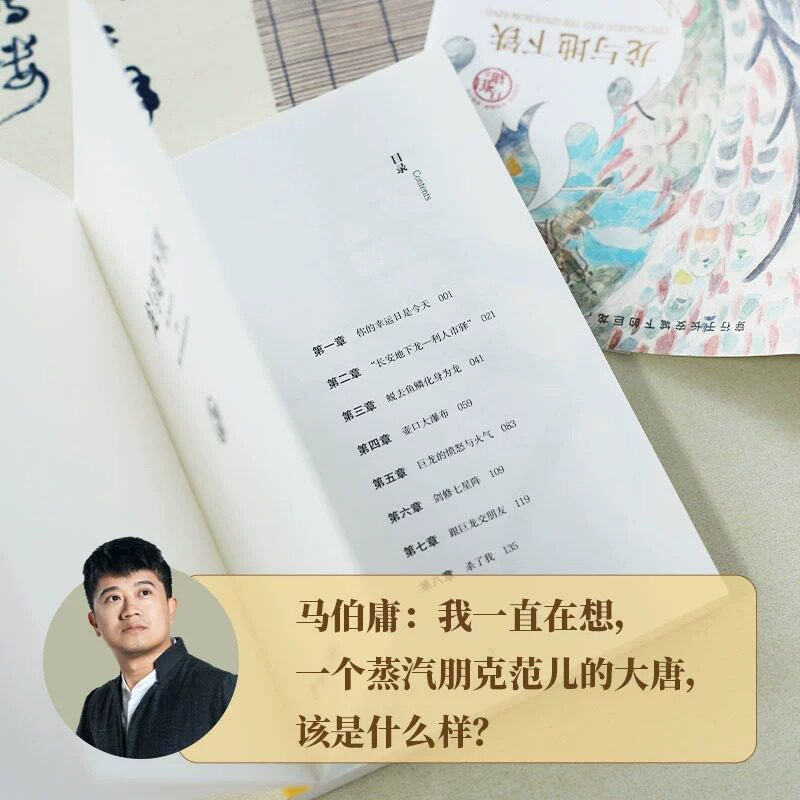 龙与地下铁
穿行于长安城下的巨龙，
目录
Contents
第一章 你的幸运日是今天 001
第二章 “长安地下龙—利人市驿” 021
第三章 蜕去鱼鳞化身为龙 041
第四章 壶口大瀑布 059
第五章 巨龙的愤怒与火气 083
第六章 剑修七星阵 109
第七章 跟巨龙交朋友 119
第八章 杀了我 135
马伯庸：我一直在想，
一个蒸汽朋克范儿的大唐，
该是什么样？